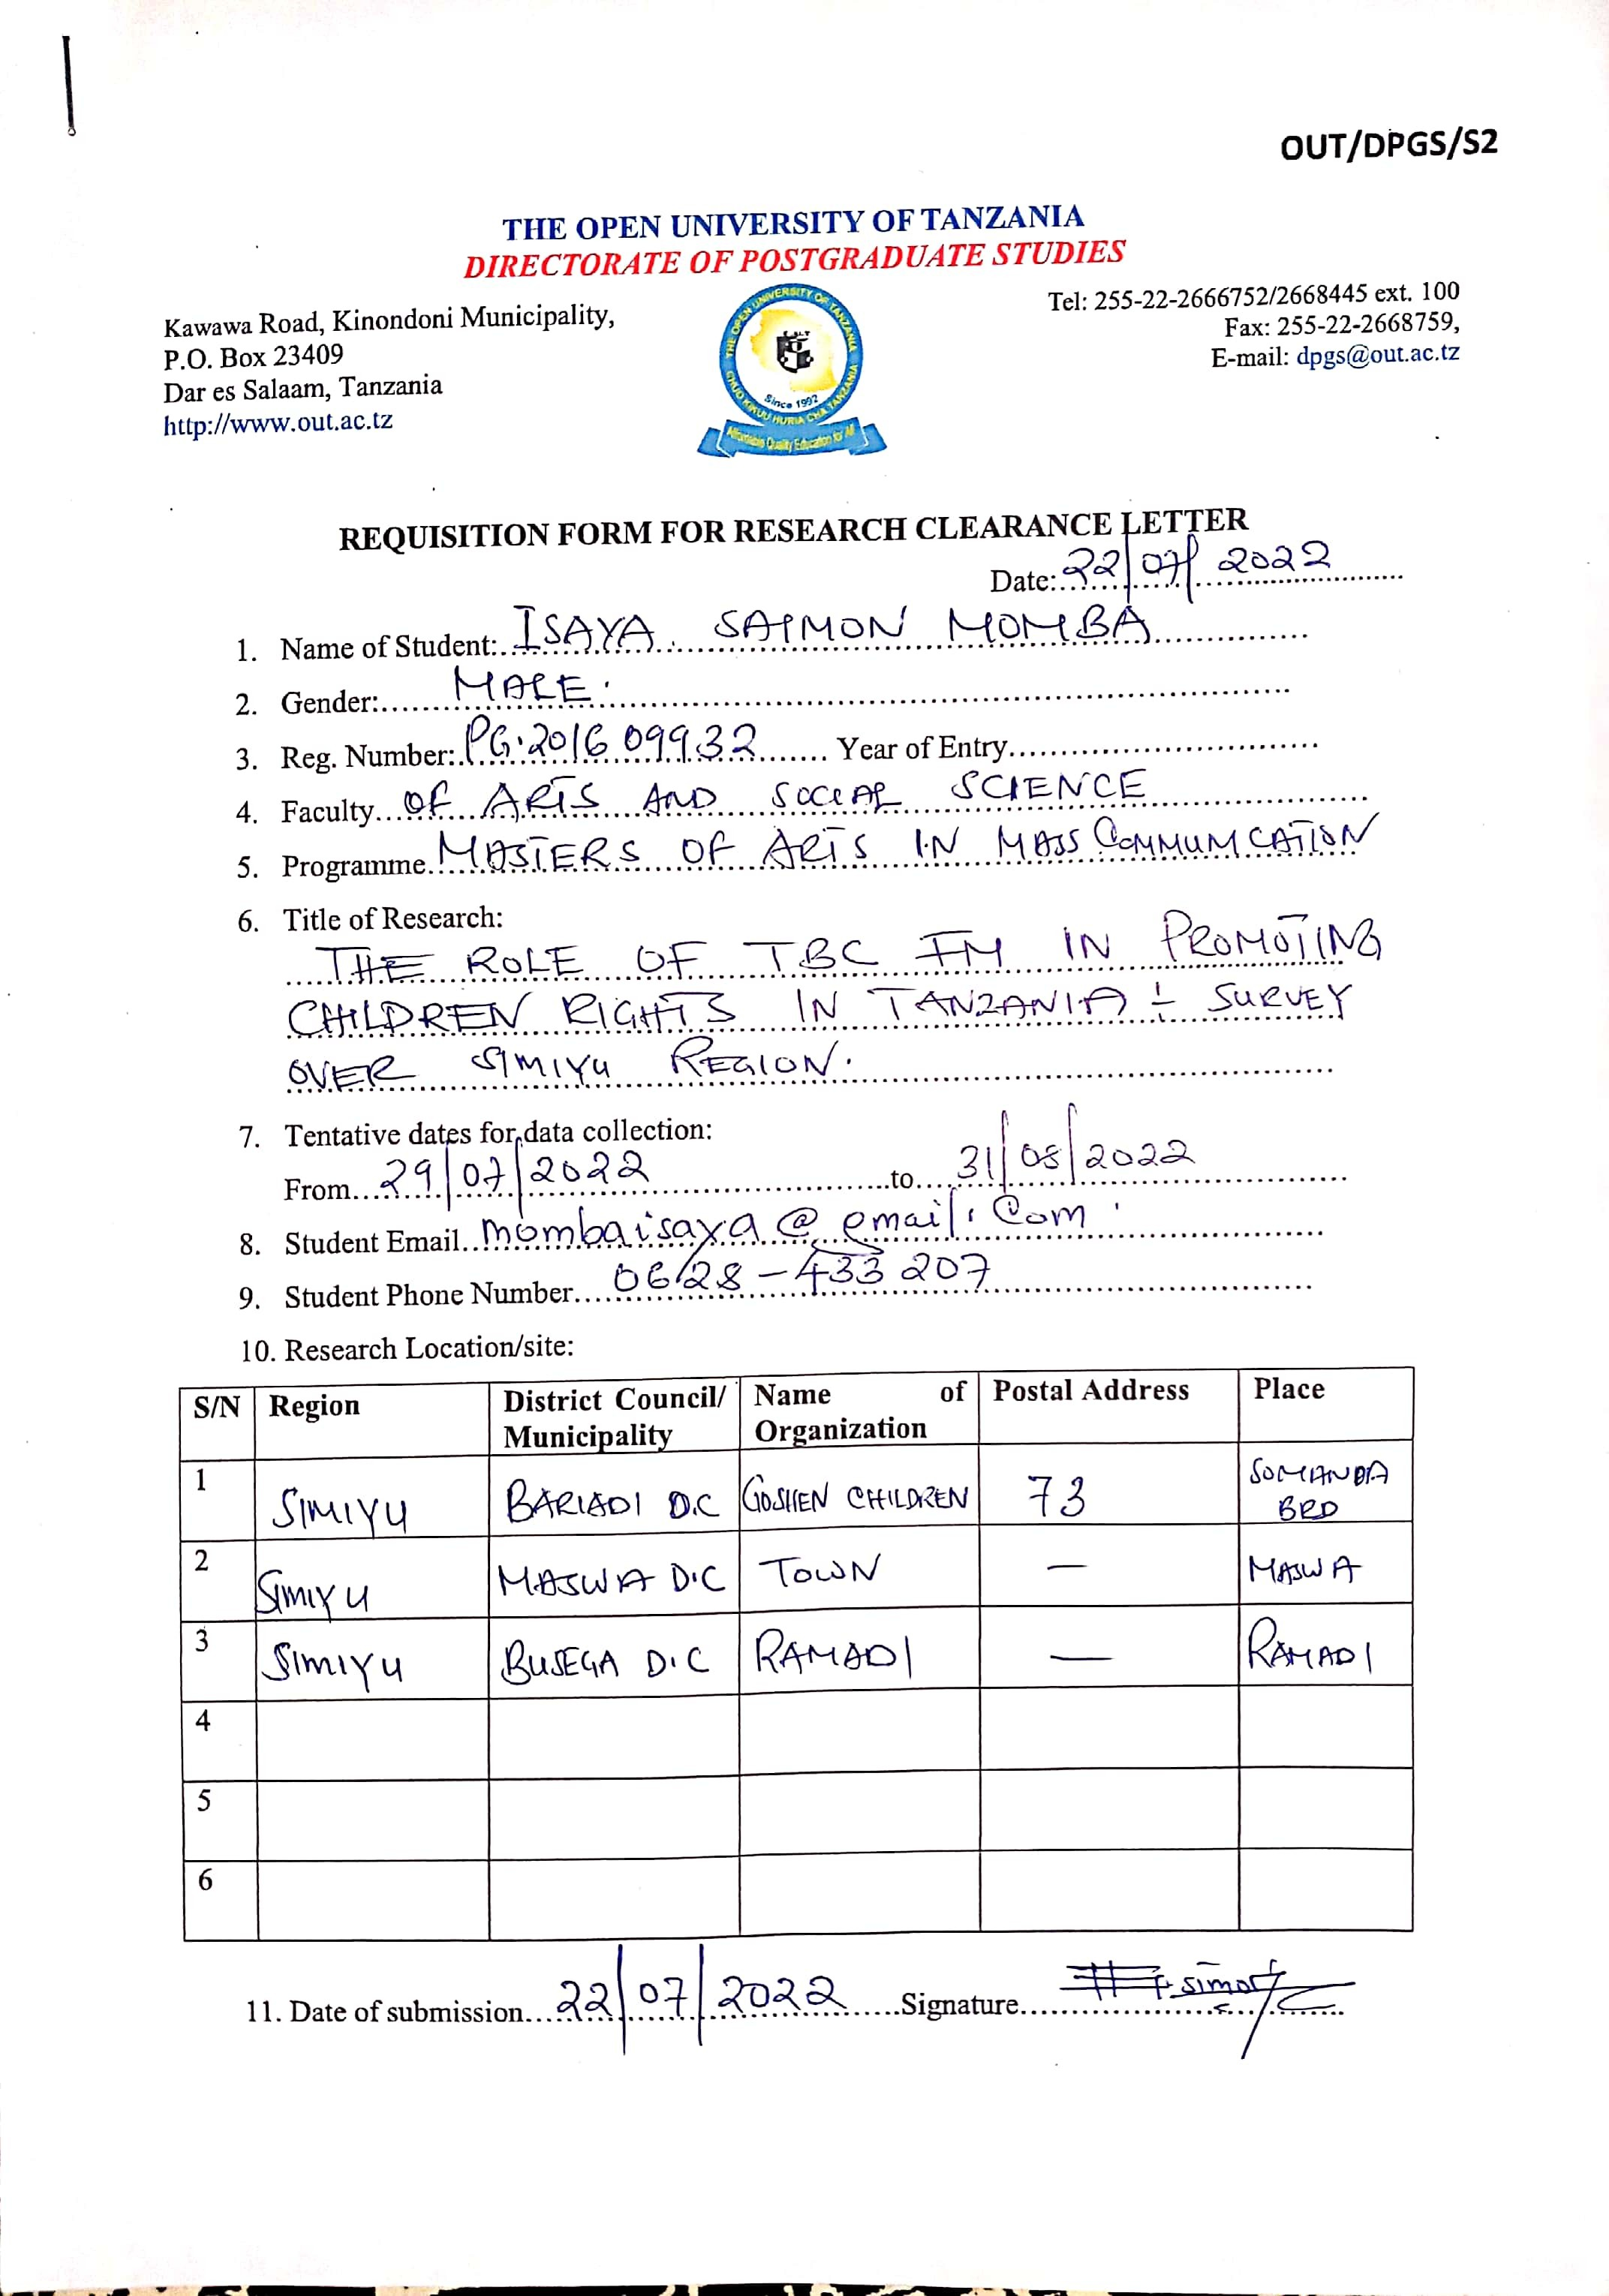 OUT/DPGS/S2
THE OPEN UNIVERSITY OF TANZANIA
DIRECTORATE OF POSTGRADUATE STUDIES
Kawawa Road, Kinondoni Municipality,
P.O. Box 23409
Dar es Salaam, Tanzania
http://www.out.ac.tz
THE OPEN UNIVERSITY OF TANZANIA
CHUO KIKUU HURIA CHA TANZANIA
Since 1992
Affordable Quality Education for All
Tel: 255-22-2666752/2668445 ext. 100
Fax: 255-22-2668759,
E-mail: dpgs@out.ac.tz
REQUISITION FORM FOR RESEARCH CLEARANCE LETTER
Date: 22/07/2022
1. Name of Student: ISAYA SAIMON MOMBA
2. Gender: MALE.
3. Reg. Number: PG.201609932 Year of Entry
4. Faculty OF ARTS AND SOCIAL SCIENCE
5. Programme MASTERS OF ARTS IN MASS COMMUMCATION
6. Title of Research:
THE ROLE OF TBC FM IN PROMOTING
CHILDREN RIGHTS IN TANZANIA : SURVEY
OVER SIMIYU REGION.
7. Tentative dates for data collection:
From 29/07/2022 to 31/08/2022
8. Student Email mombaisaya@email.com
9. Student Phone Number 0628-433207
10. Research Location/site:
S/N Region District Council/ Municipality Name of Organization Postal Address Place
1 SIMIYU BARIADI D.C GOSHEN CHILDREN 73 SOMANDA BRD
2 SIMIYU MASWA D.C TOWN — MASWA
3 SIMIYU BUSEGA D.C RAMADI — RAMADI
4
5
6
11. Date of submission 22/07/2022 Signature